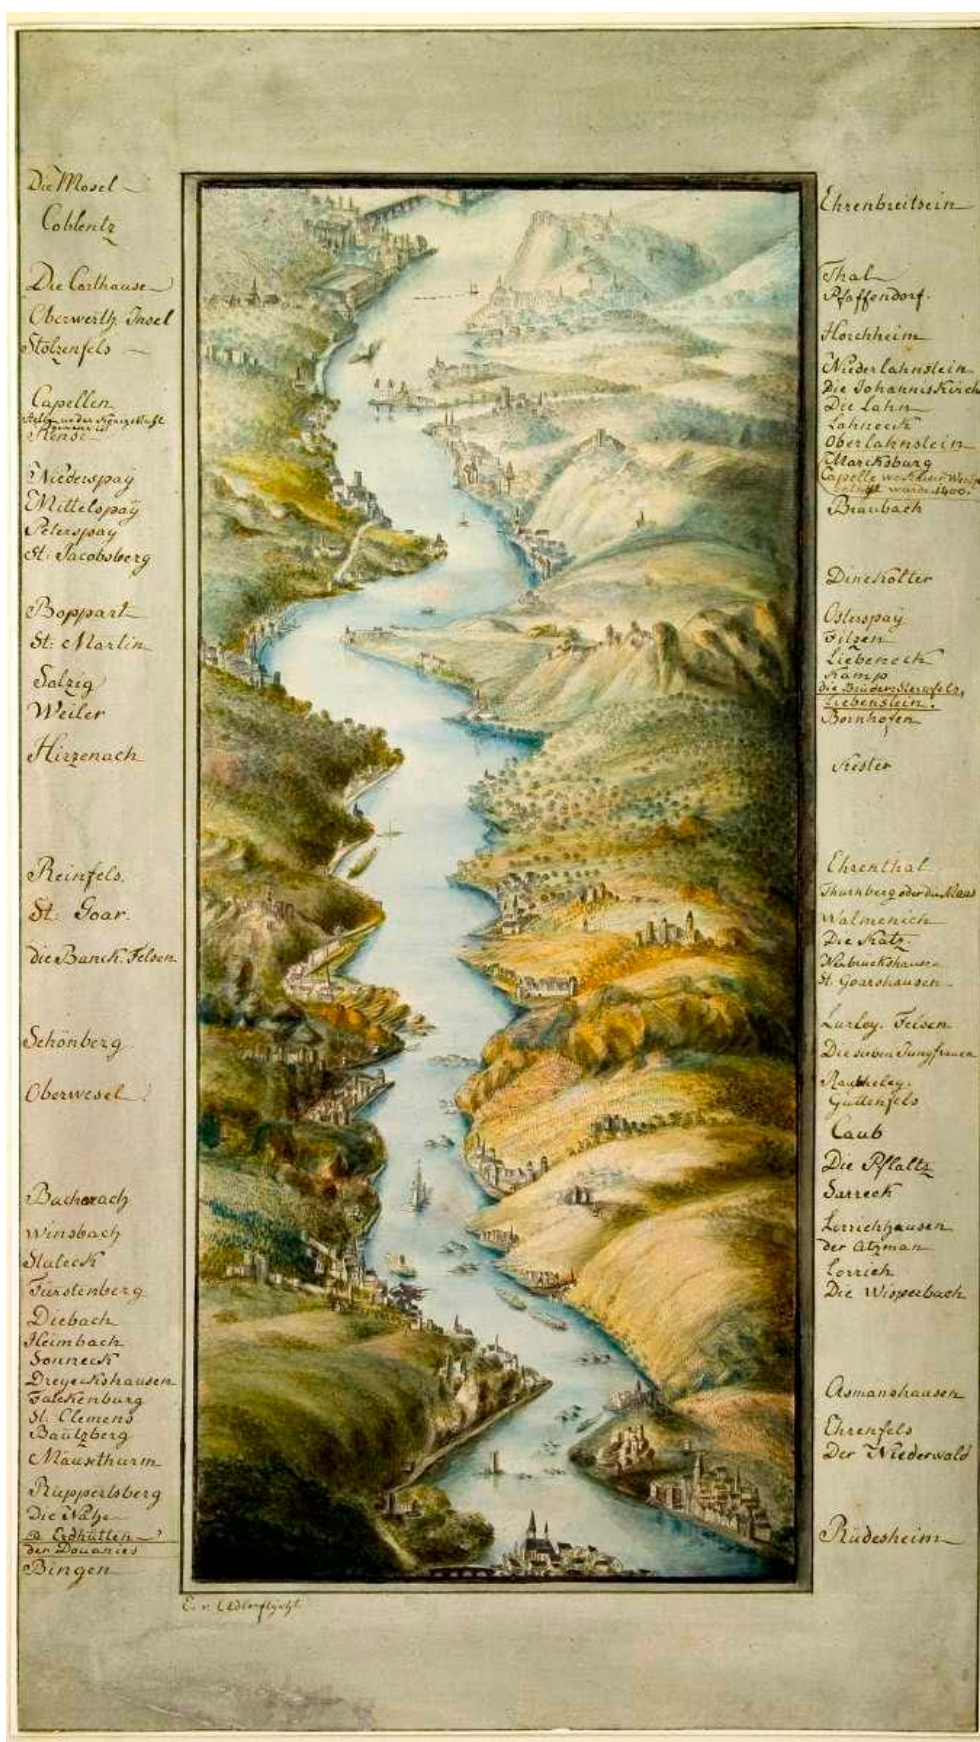 Die Mosel
Coblentz
Die Carthause
Oberwerth. Insel
Stolzenfels
Capellen
Rense
Niederspay
Mittelspaÿ
Peterspay
St: Jacobsberg
Boppart
St: Martin
Salzig
Weiler
Hirzenach
Reinfels.
St: Goar.
die Banck. Felsen
Schönberg
Oberwesel
Bacharach
Winsbach
Staleck
Fürstenberg
Diebach
Heimbach
Sonneck
Dreyeckshausen
Falckenburg
St. Clemens
Bautzberg
Mäusethurm
Ruppertsberg
Die Nahe
Erdhütten
der Douaniers
Bingen
Ehrenbreitsein
Thal
Pfaffendorf.
Horchheim
Niederlahnstein
Die Johannis Kirch
Die Lahn
Lahneck
Oberlahnstein
Marcksburg
Capelle wo Kaiser
wurde 1400.
Braubach
Dinckolter
Osterspay
Filsen
Liebeneck
Kamp
die Brüder Sternfels,
Liebenstein.
Bornhofen
Kester
Ehrenthal
Thurnberg oder die Maus
Walmenich
Die Katz.
St. Goarshausen
Lurley. Felsen
Die sieben Jungfrauen
Guttenfels
Caub
Die Pflaltz
Sarreck
Lorrichhausen
der Atzman
Lorrich
Die Wisperbach
Asmanshausen
Ehrenfels
Der Niederwald
Rüdesheim
E. v. Adlerflycht